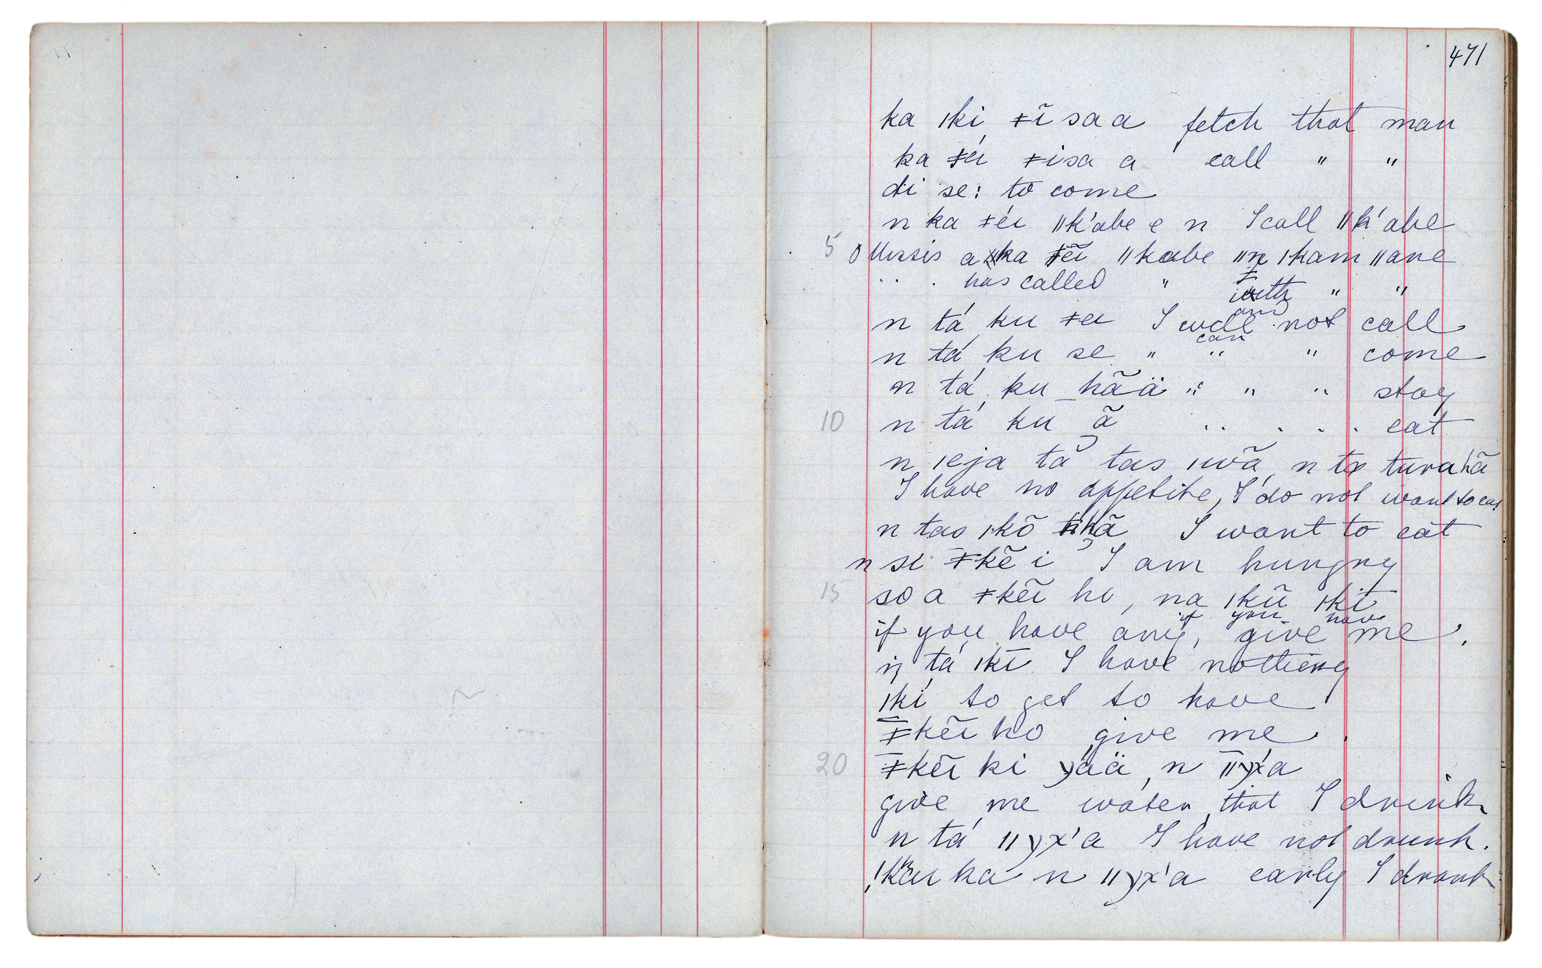 471
ka ǀki ǂĩ saa fetch that man
ka ǂéi ǂisa a call " "
di se: to come
n ka ǂéi ǁk'abe e n I call ǁk'abe
5 a ka ǂẽi ǁkabe ǁn ǀkam ǁane
. . . has called " with " "
n tá ku ǂei I will am not call
n tá ku se " can " come
n tá ku hãä " " " stay
10 n tá ku ã . . . . . eat
n ǀeja tã tas ǀwã n ta tura hã
I have no appetite, I do not want to eat
n tas ǀkõ hã I want to eat
n si ǂkẽ i I am hungry
15 so a ǂkẽi ho, na ǀkũ ǀkĩ
if you have any, if you have give me.
n tá ǀkĩ I have nothing
ǀkí to get to have
ǂkẽi ho give me.
20 ǂkẽi ki yää, n ǁyx'a
give me water, that I drink
n tá ǁyx'a I have not drunk.
ka n ǁyx'a early I drank